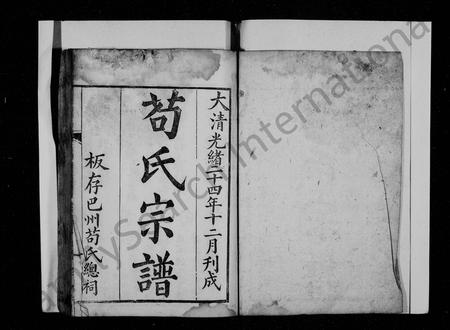 大清光緒二十四年十二月刊成
苟氏宗譜
板存巴州苟氏總祠
FamilySearch International